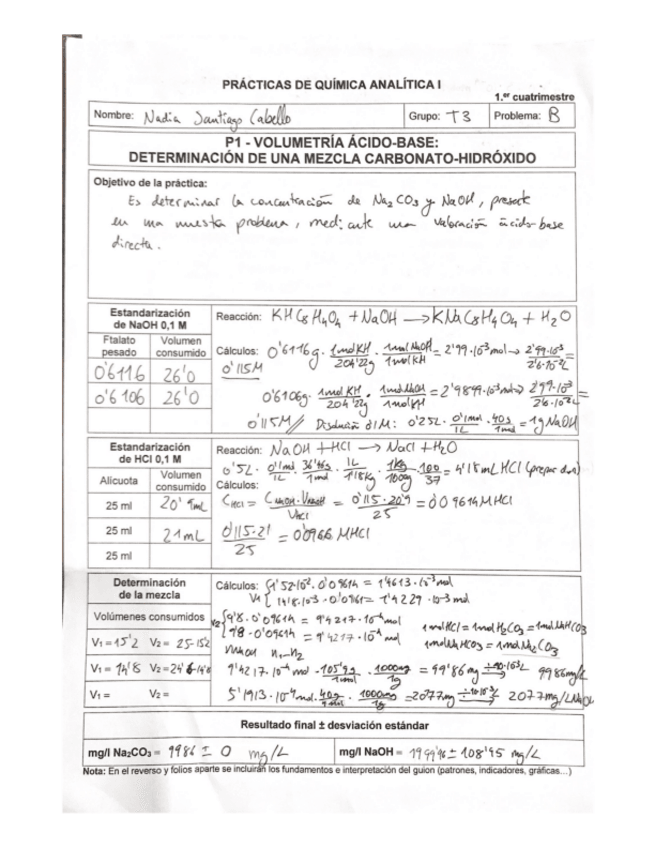 PRÁCTICAS DE QUÍMICA ANALÍTICA I
1.er cuatrimestre
Nombre: Nadia Santiago Cabello Grupo: T3 Problema: B
P1 - VOLUMETRÍA ÁCIDO-BASE:
DETERMINACIÓN DE UNA MEZCLA CARBONATO-HIDRÓXIDO
Objetivo de la práctica:
Es determinar la concentración de Na2CO3 y NaOH, presente
en una muestra problema, mediante una valoración ácido-base
directa.
Estandarización
de NaOH 0,1 M
Ftalato pesado Volumen consumido
0'6116 26'0
0'6106 26'0
Reacción: KHC8H4O4 + NaOH → KNaC8H4O4 + H2O
Cálculos: 0'6116g · 1molKH/204'22g · 1molNaOH/1molKH = 2'99·10-3mol → 2'99·10-3/2'6·10-2L =
0'115M
0'6106g · 1molKH/204'22g · 1molNaOH/1molKH = 2'9899·10-3mol → 2'99·10-3/2'6·10-2L =
0'115M // Disolución 0'1M: 0'25L · 0'1mol/1L · 40g/1mol = 1g NaOH
Estandarización
de HCl 0,1 M
Alicuota Volumen consumido
25 ml 20'9mL
25 ml 21mL
25 ml
Reacción: NaOH + HCl → NaCl + H2O
0'5L · 0'1mol/1L · 36'46g/1mol · 1L/1'18Kg · 1Kg/1000g · 100/37 = 4'18mL HCl
Cálculos:
CHCl = CNaOH·VNaOH/VHCl = 0'115·20'9/25 = 0'09614M HCl
0'115·21/25 = 0'0966 M HCl
Determinación
de la mezcla
Volúmenes consumidos
V1 = 15'2 V2 = 25-15'2
V1 = 14'8 V2 =
V1 = V2 =
Cálculos: 1'52·10-2 · 0'09614 = 1'4613·10-3 mol
V1 14'8·10-3 · 0'0961 = 1'4229·10-3 mol
V2 9'8 · 0'09614 = 9'4217·10-4 mol
9'8 · 0'09614 = 9'4217·10-4 mol
1molHCl = 1molH2CO3 = 1molNaHCO3
1molNaHCO3 = 1molNa2CO3
NaOH n1-n2
9'4217·10-4 mol · 105'99g/1mol · 1000mg/1g = 99'86mg 9986mg/L
5'1913·10-4 mol · 40g/1mol · 1000mg/1g = 20'77mg 2077mg/L NaOH
Resultado final ± desviación estándar
mg/l Na2CO3 = 9986 ± 0 mg/L mg/l NaOH = 1999'96 ± 108'95 mg/L
Nota: En el reverso y folios aparte se incluirán los fundamentos e interpretación del guion (patrones, indicadores, gráficas...)